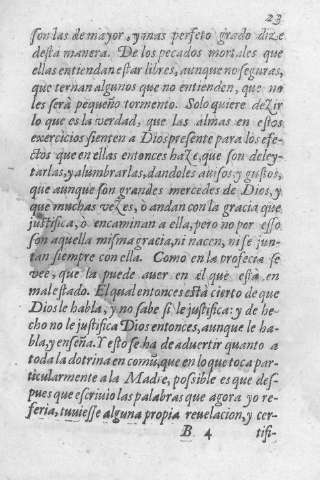 23
son las de mayor, y mas perfeto grado dize
desta manera. De los pecados mortales que
ellas entiendan estar libres, aunque no seguras,
que ternan algunos que no entienden, que no
les serà pequeño tormento. Solo quiere dezir
lo que es la verdad, que las almas en estos
exercicios sienten a Dios presente para los efe-
ctos que en ellas entonces haze, que son deley-
tarlas, y alumbrarlas, dandoles auisos, y gustos,
que aunque son grandes mercedes de Dios, y
que muchas vezes, ò andan con la gracia que
justifica, o encaminan a ella, pero no por esso
son aquella misma gracia, ni nacen, ni se jun-
tan siempre con ella. Como en la profecia se
vee, que la puede auer en el que està en
mal estado. El qual entonces està cierto de que
Dios le habla, y no sabe si le justifica: y de he-
cho no le justifica Dios entonces, aunque le ha-
bla, y enseña. Y esto se ha de aduertir quanto a
toda la dotrina en comũ, que en lo que toca par-
ticularmente a la Madre, possible es que des-
pues que escriuio las palabras que agora yo re-
feria, tuuiesse alguna propia reuelacion, y cer-
B 4 tifi-